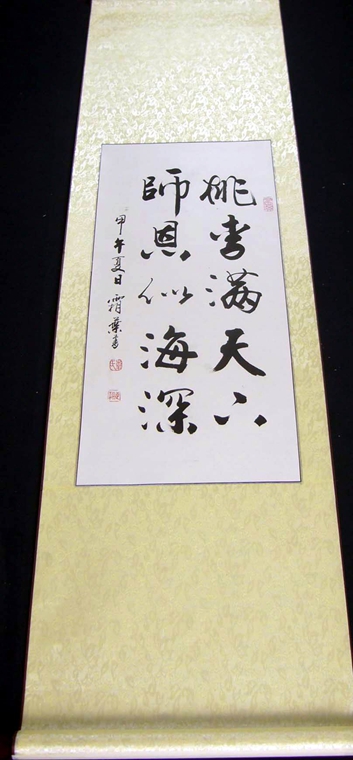 桃李满天下
師恩似海深
甲午夏日霜葉書